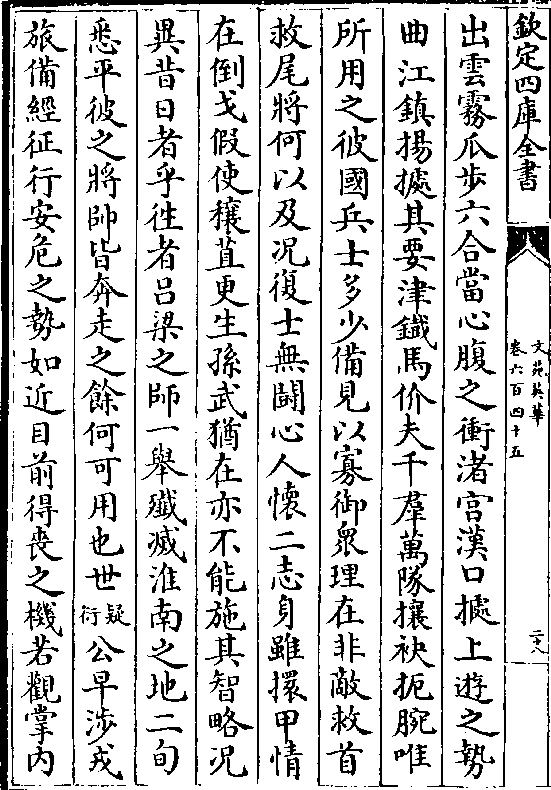 欽定四庫全書
文苑英華
卷六百四十五
二十八
出雲霧瓜步六合當心腹之衝渚宫漢口據上遊之勢
曲江鎮揚據其要津鐵馬价夫千羣萬隊攘袂扼腕唯
所用之彼國兵士多少備見以寡御衆理在非敵救首
救尾將何以及况復士無鬬心人懷二志身雖擐甲情
在倒戈假使穰苴更生孫武猶在亦不能施其智略况
異昔日者乎徃者吕梁之師一舉殱滅淮南之地二旬
悉平彼之將帥皆奔走之餘何可用也世疑衍公早涉戎
旅備經征行安危之勢如近目前得喪之機若觀掌内